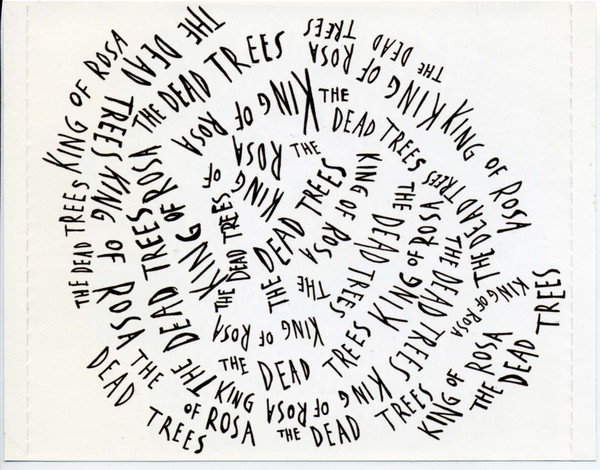 KING OF ROSA
THE DEAD TREES
THE DEAD TREES
THE DEAD TREES
KING OF ROSA
KING OF ROSA
THE DEAD TREES
KING OF ROSA
THE DEAD TREES
KING OF ROSA
THE DEAD TREES
KING OF ROSA
THE DEAD TREES
KING OF ROSA
THE DEAD TREES
THE DEAD TREES
KING OF ROSA
KING OF ROSA
THE DEAD TREES
KING OF ROSA
THE DEAD TREES
KING OF ROSA
THE DEAD TREES
KING OF ROSA
THE DEAD TREES
KING OF ROSA
THE
THE DEAD TREES
KING OF ROSA
THE